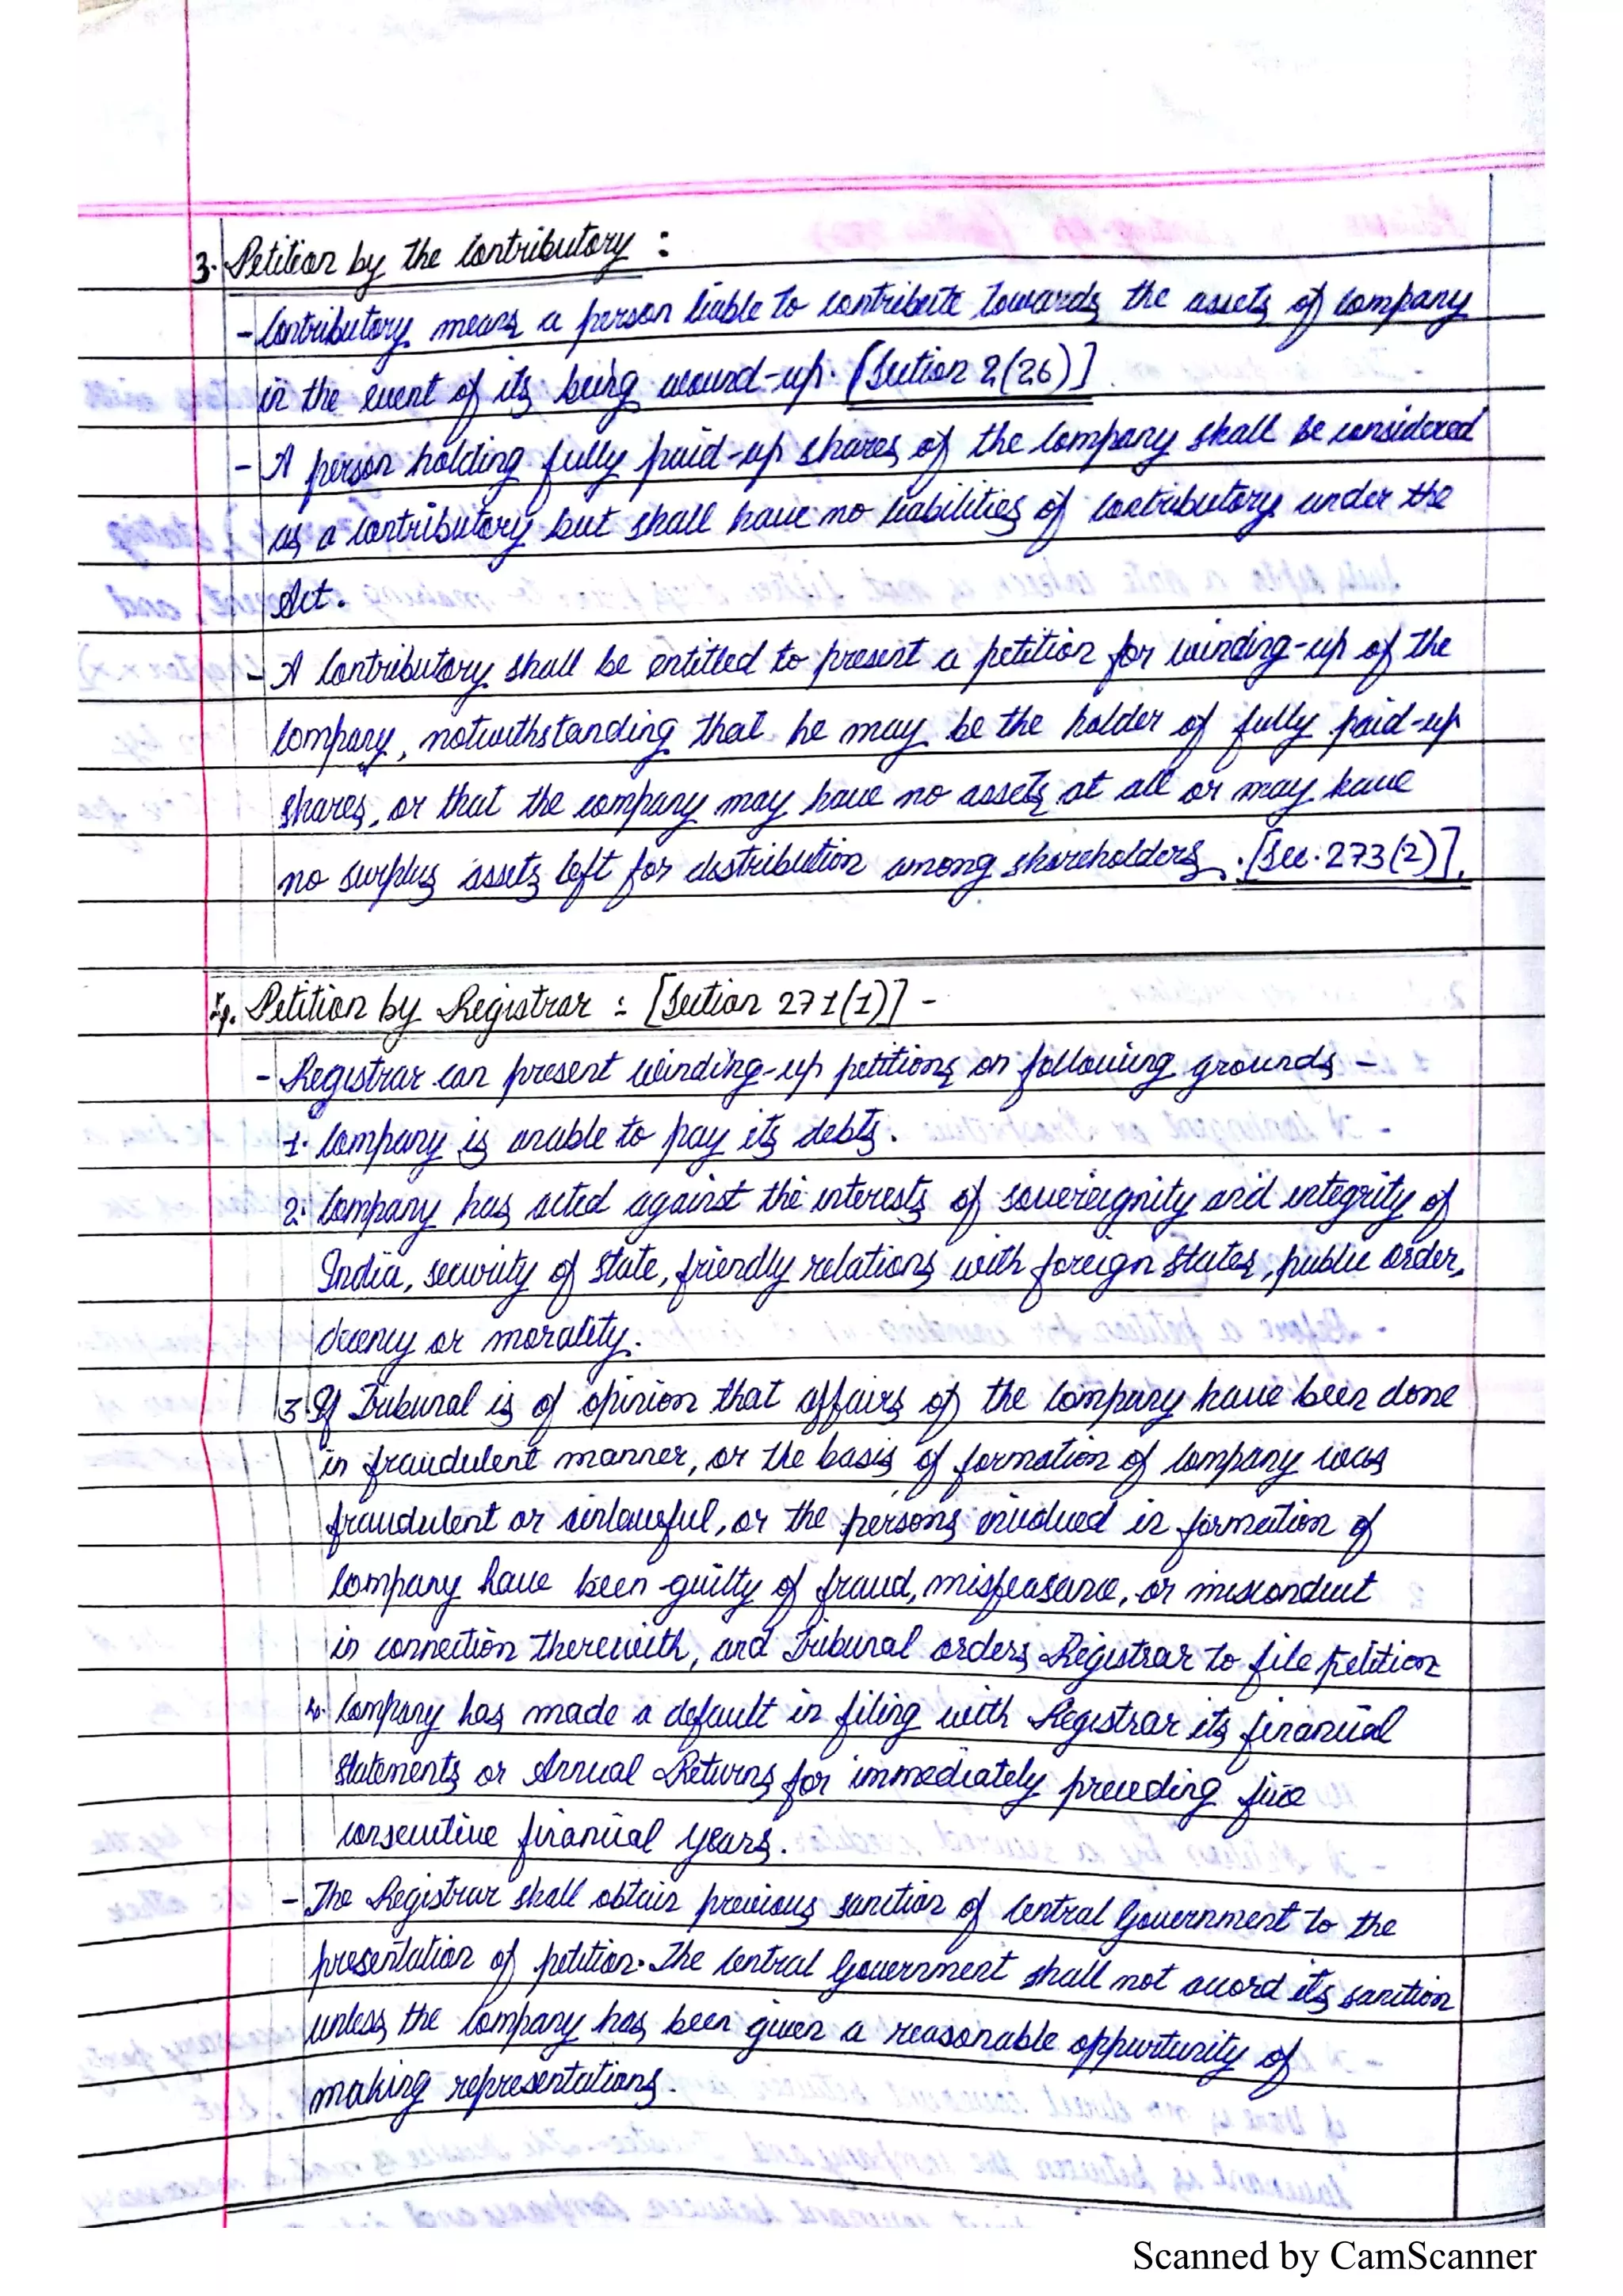 3. Petition by the Contributory :
- Contributory means a person liable to contribute towards the assets of Company
in the event of its being wound-up. [Section 2(26)]
- A person holding fully paid-up shares of the Company shall be considered
as a Contributory but shall have no liabilities of contributory under the
Act.
- A Contributory shall be entitled to present a petition for winding-up of the
Company, notwithstanding that he may be the holder of fully paid-up
shares, or that the company may have no assets at all or may have
no surplus assets left for distribution among shareholders. [Sec. 273(2)].
4. Petition by Registrar : [Section 271(1)] -
- Registrar can present winding-up petitions on following grounds -
1. Company is unable to pay its debts.
2. Company has acted against the interests of sovereignity and integrity of
India, security of state, friendly relations with foreign states, public order,
decency or morality.
3. If Tribunal is of opinion that affairs of the Company have been done
in fraudulent manner, or the basis of formation of Company was
fraudulent or unlawful, or the persons involved in formation of
Company have been guilty of fraud, misfeasance, or misconduct
in connection therewith, and Tribunal orders Registrar to file petition
4. Company has made a default in filing with Registrar its financial
Statements or Annual Returns for immediately preceding five
consecutive financial years.
- The Registrar shall obtain previous sanction of Central Government to the
presentation of petition. The Central Government shall not accord its sanction
unless the Company has been given a reasonable oppurtunity of
making representations.
Scanned by CamScanner